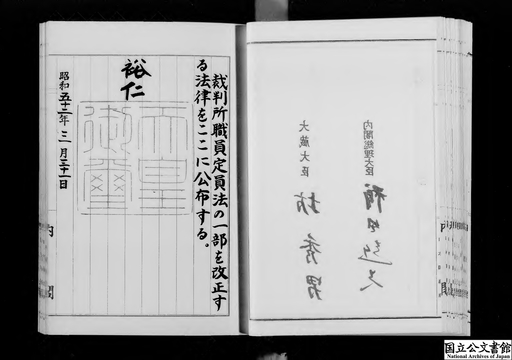 内閣総理大臣 福田赳夫
大蔵大臣 坊秀男
裁判所職員定員法の一部を改正す
る法律をここに公布する。
裕仁
天皇
御璽
昭和五十二年三月三十一日
内閣
国立公文書館
National Archives of Japan